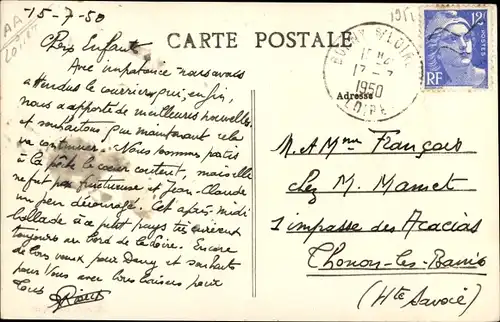 15-7-50
CARTE POSTALE
Chers Enfants
Avec impatience nous avons
attendus le courrier qui, enfin,
nous a apporté de meilleures nouvelles
et souhaitons que maintenant cela
va continuer. Nous sommes partis
à la pêche le coeur content, mais elle
ne fut pas fructueuse et Jean-Claude
un peu découragé. Cet après-midi
ballade à ce petit pays très curieux
toujours au bord de la Loire. Encore
de bons voeux pour Dany et souhaits
pour Vous avec bons baisers pour
tous
1950
LOIRET
Adresse
12F
POSTES
RF
M. et Mme François
chez M. Mamet
1 impasse des Acacias
Thonon-les-Bains
(Hte Savoie)